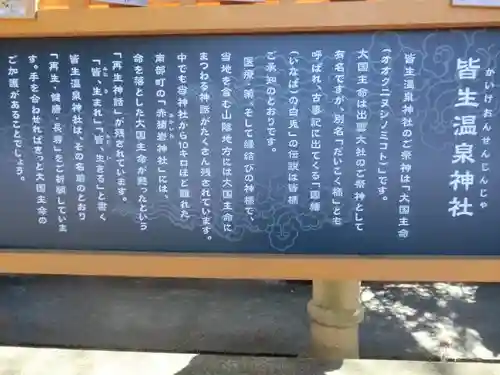 皆生温泉神社
かいけおんせんじんじゃ
皆生温泉神社のご祭神は「大国主命
(オオクニヌシノミコト)」です。
大国主命は出雲大社のご祭神として
有名ですが、別名「だいこく様」とも
呼ばれ、古事記に出てくる「因幡
(いなば)の白兎」の伝説は皆様
ご承知のとおりです。
医療、薬、そして縁結びの神様で、
当地を含む山陰地方には大国主命に
まつわる神話がたくさん残されています。
中でも当神社から10キロほど離れた
南部町の「赤猪岩神社」には、
命を落とした大国主命が甦ったという
「再生神話」が残されています。
「皆、生まれ」「皆、生きる」と書く
皆生温泉神社は、その名前のとおり
「再生・健康・長寿」をご祈願していま
す。手を合わせればきっと大国主命の
ご加護があることでしょう。